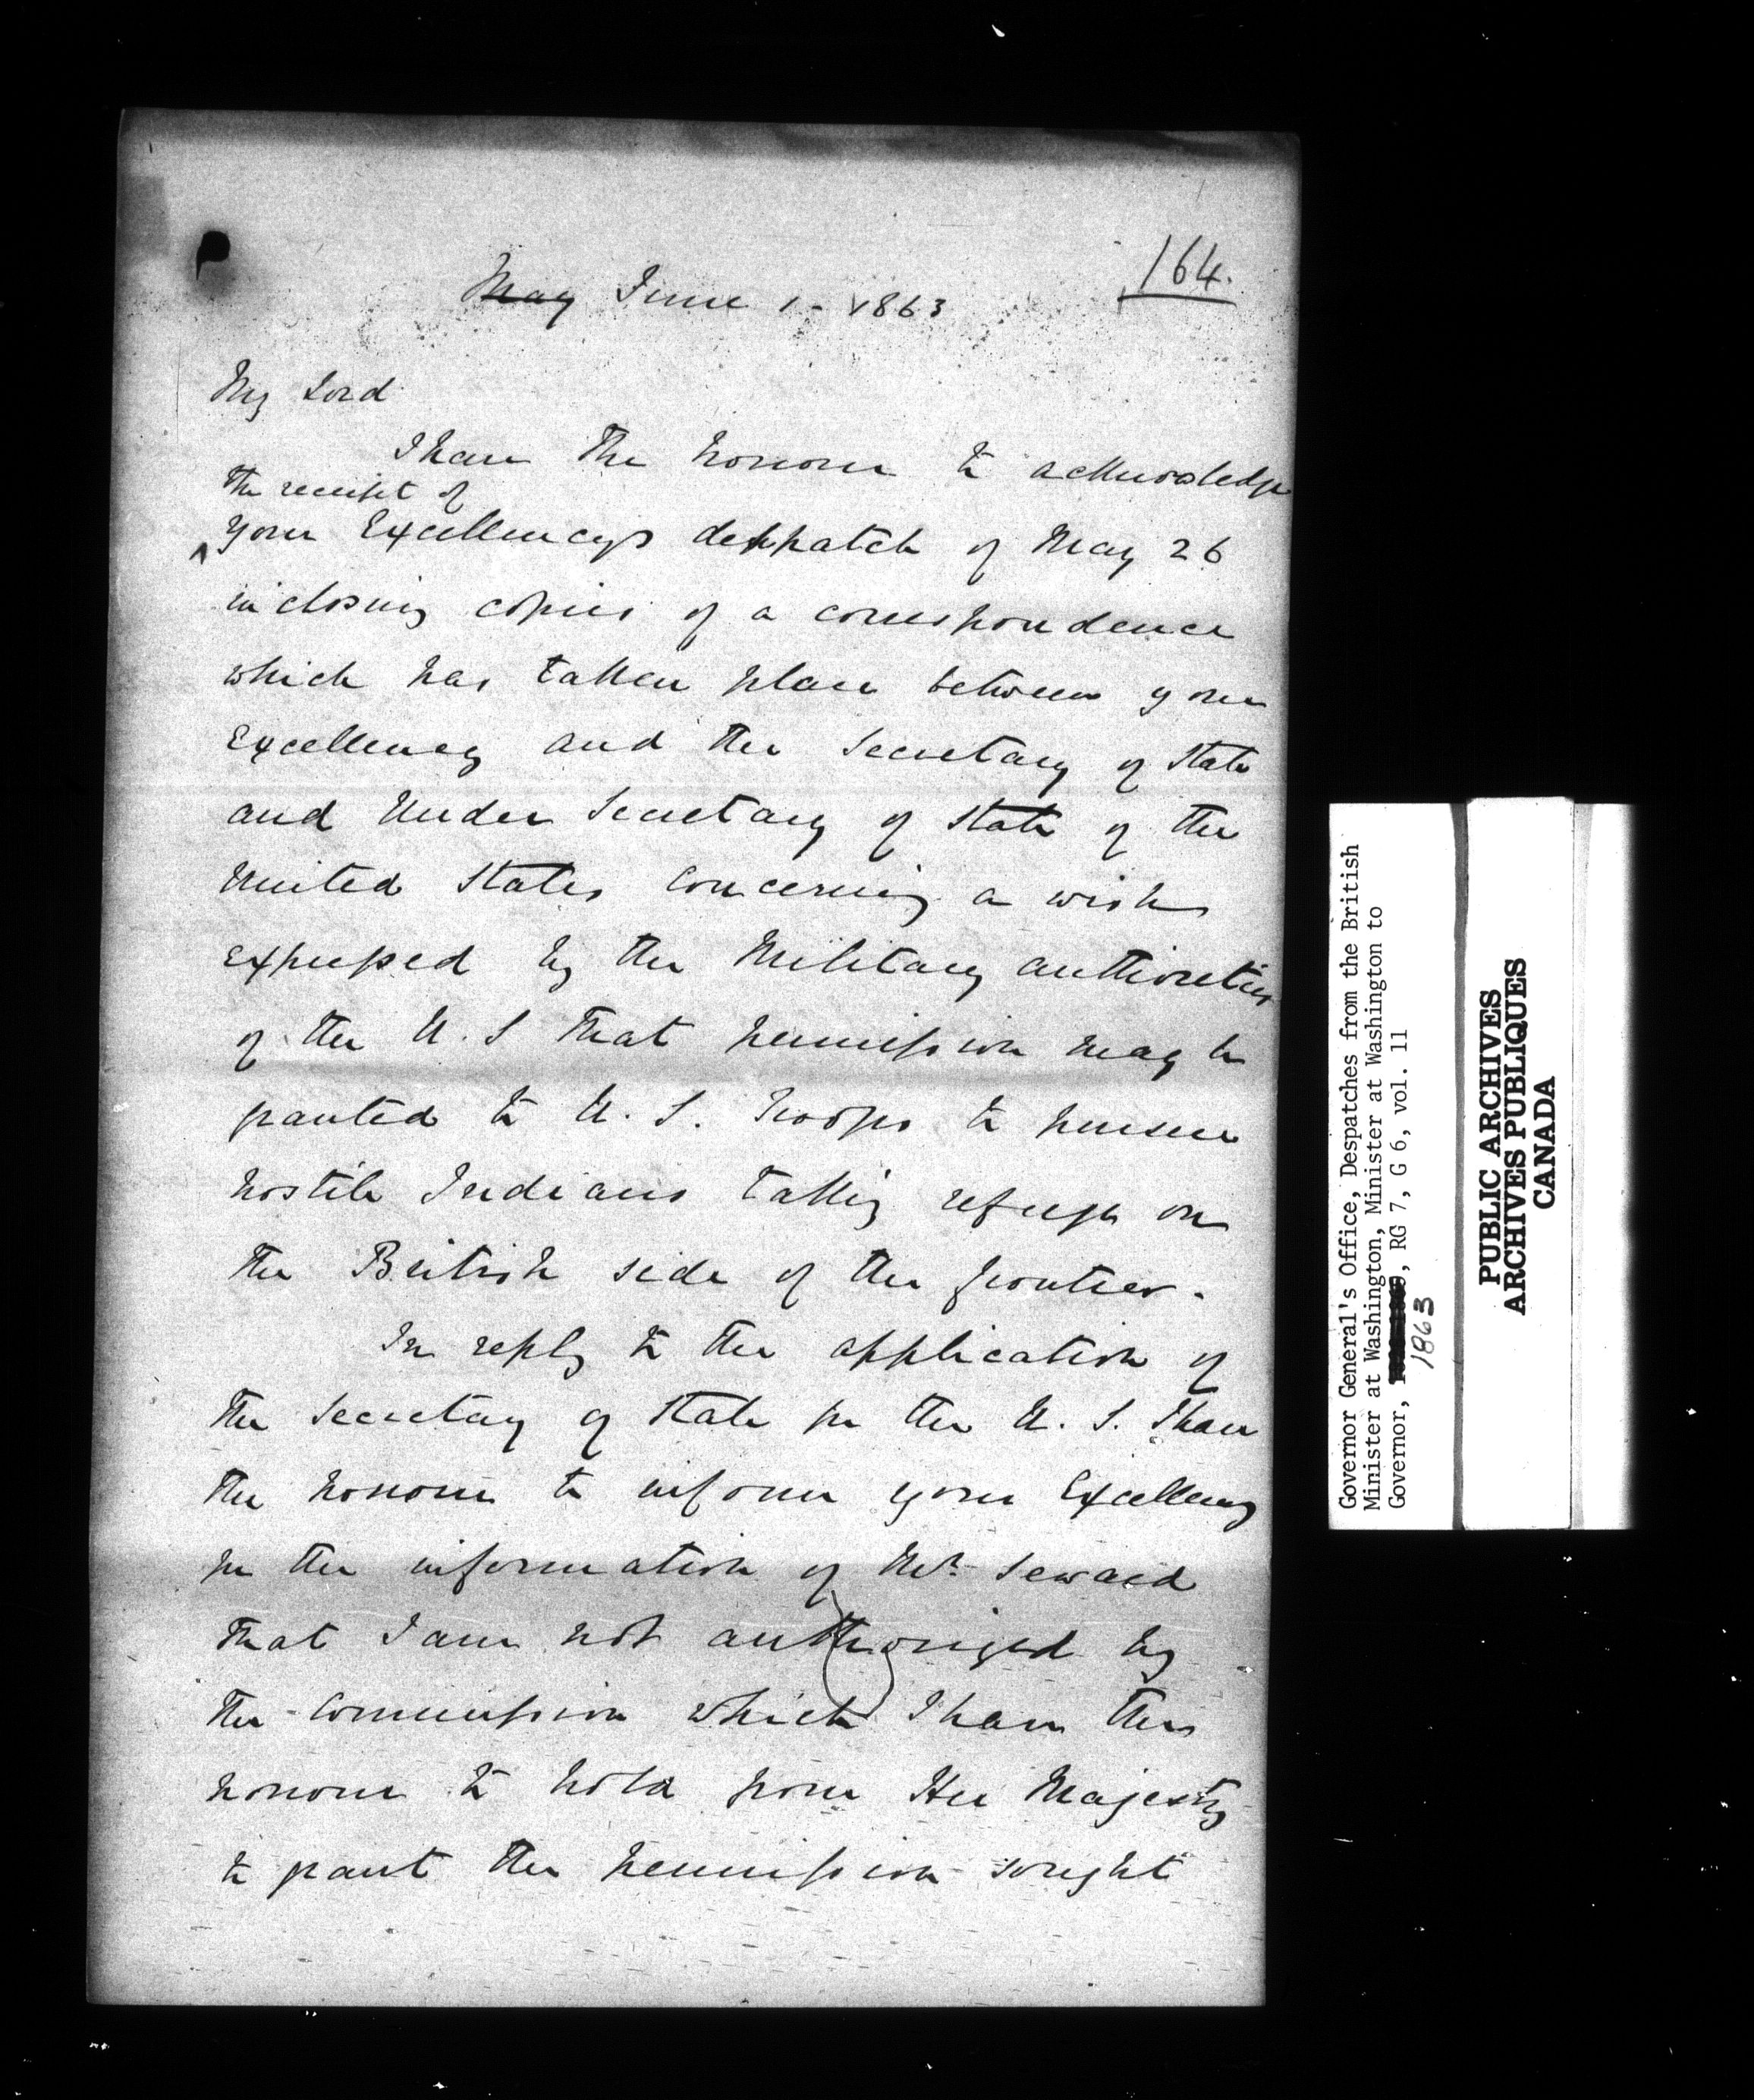 164.
May June 1 - 1863
My Lord
I have the honour to acknowledge
the receipt of
your Excellency's despatch of May 26
inclosing copies of a correspondence
which has taken place between your
Excellency and the Secretary of State
and Under Secretary of State of the
United States concerning a wish
expressed by the Military authorities
of the U. S that permission may be
granted to U. S. Troops to pursue
hostile Indians taking refuge on
the British side of the frontier.
In reply to the application of
the Secretary of State for the U. S. I have
the honour to inform your Excellency
for the information of Mr. Seward
that I am not authorized by
the commission which I have the
honour to hold from Her Majesty
to grant the permission sought
Governor General's Office, Despatches from the British
Minister at Washington, Minister at Washington to
Governor, , RG 7, G 6, vol. 11
1863
PUBLIC ARCHIVES
ARCHIVES PUBLIQUES
CANADA